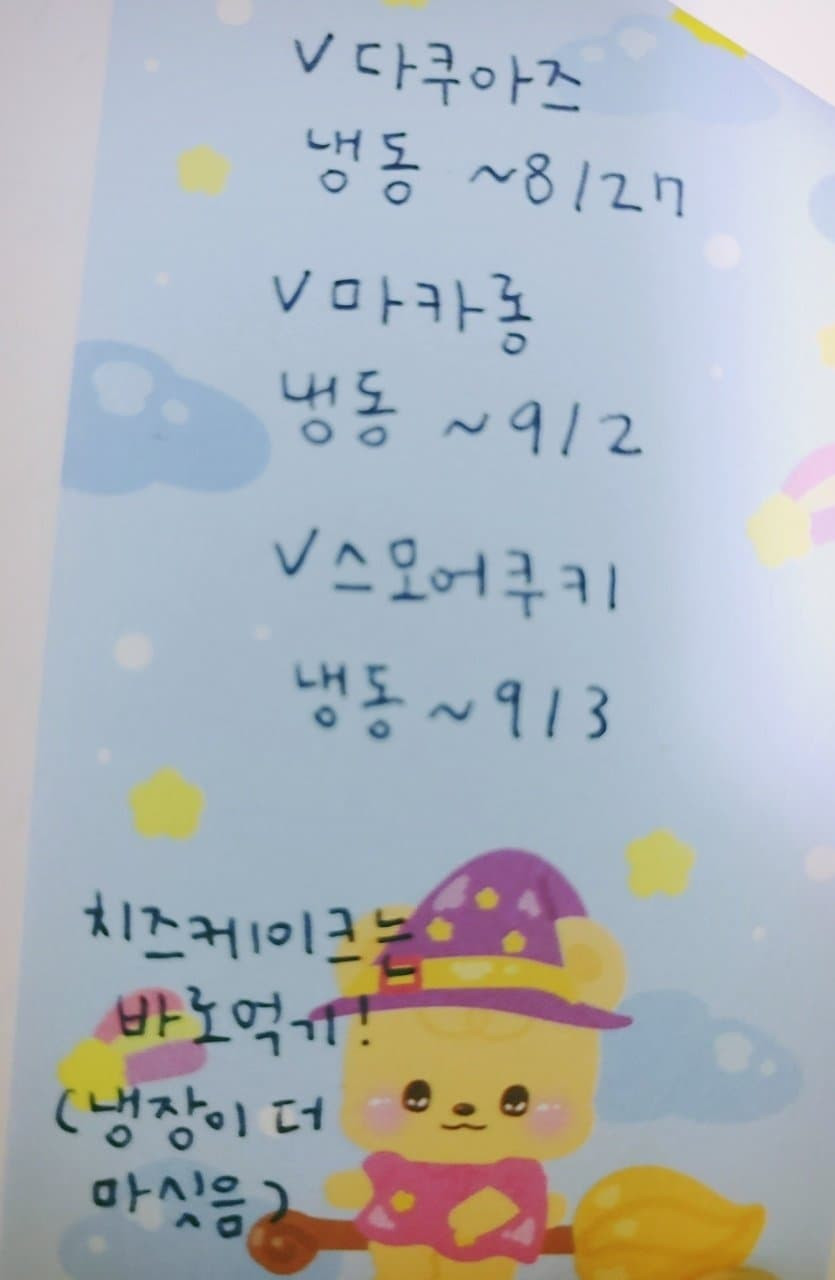 V 다쿠아즈
냉동 ~8/27
V 마카롱
냉동 ~9/2
V 스모어쿠키
냉동 ~9/3
치즈케이크는
바로먹기!
(냉장이 더
마싯음)